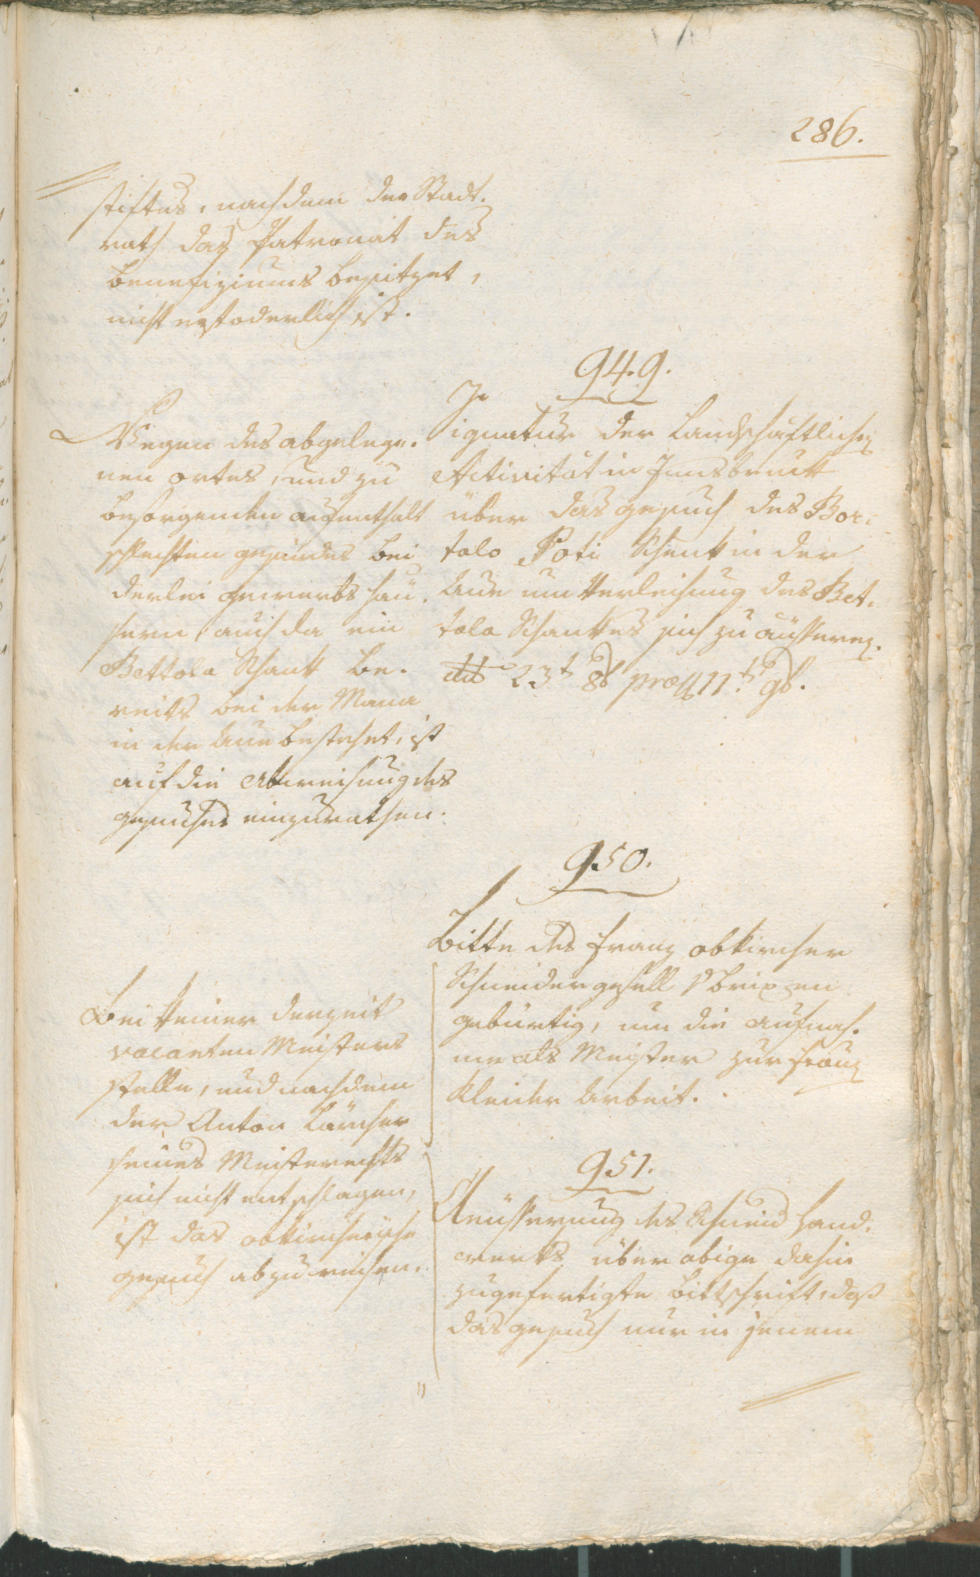 286.
stiftes, nachdem der Stadt-
rath das Patronat des
Benefiziums besitzet,
nicht erfoderlich ist.
949.
Wegen des abgelege-
nen ortes, und zu
besorgenden aufenthalt
schlechten gesindes bei
derlei gewerbs häu-
sern, auch da ein
Bettola Schank be-
reits bei der Mana
in der Aue bestehet, ist
auf die Abweisung des
gesuches einzurathen.
Si
ignatur der Landschaftlichen
Activität in Innsbruck
über das gesuch des Bor-
tolo Poti Schenk in der
Aue um Verleihung des Bet-
tola Schankes sich zu äusseren.
dto 23t 8b praes 11t 9b.
950.
Bitte des Franz obkircher
Schneidergesell v Brixen
gebürtig, um die aufnah-
me als Meister zur frauen
Kleider Arbeit.
Bei keiner derzeit
vacanten Meisters
stelle, und nachdem
der Anton Lärcher
seines Meisterrechts
sich nicht entschlagen,
ist das obkircherische
gesuch abzuweisen.
951.
Aeusserung des Schneid Hand-
werks über obige dahin
zugefertigte Bittschrift, daß
das gesuch nur in jenem